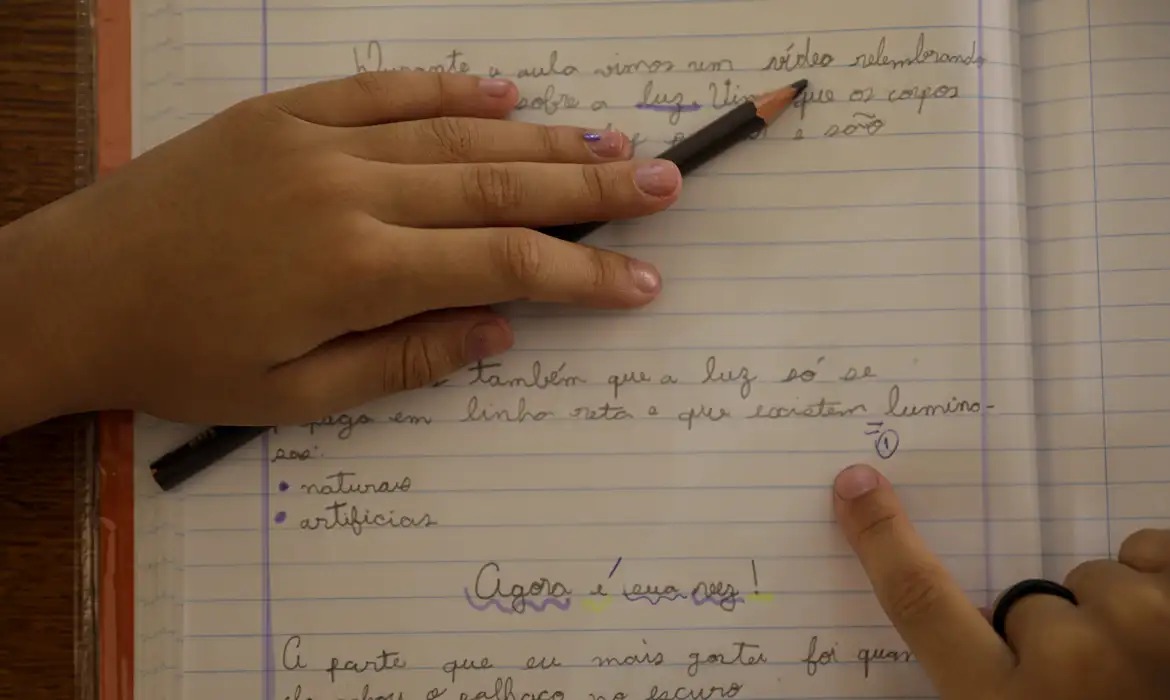 Durante a aula vimos um vídeo relembrando
sobre a luz. que os corpos
e são
também que a luz só se
em linha reta e que existem lumino-
sos:
• naturais
• artificias
=①
Agora é sua vez!
A parte que eu mais gostei foi
o palhaço no escuro